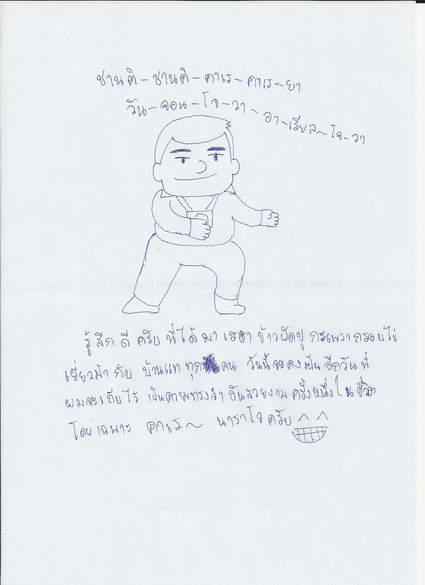 ชานติ-ชานติ-คาเร-คาเร-ยา
วัน-จอน-โจ-วา-อา-เรียล~โจ-วา
รู้สึกดีครับ ที่ได้มาเฮฮา ข้าวผัดปู กระเพรากรอบไข่
เยี่ยวม้า กับ บ้านแท ทุก คน วันนี้จะคงเป็น อีกวันที่
ผมจะเก็บไว้ เป็นความทรงจำ อันสวยงาม ครั้งหนึ่งในชีวิต
โดยเฉพาะ คาเร~ นาราโจครับ ^^